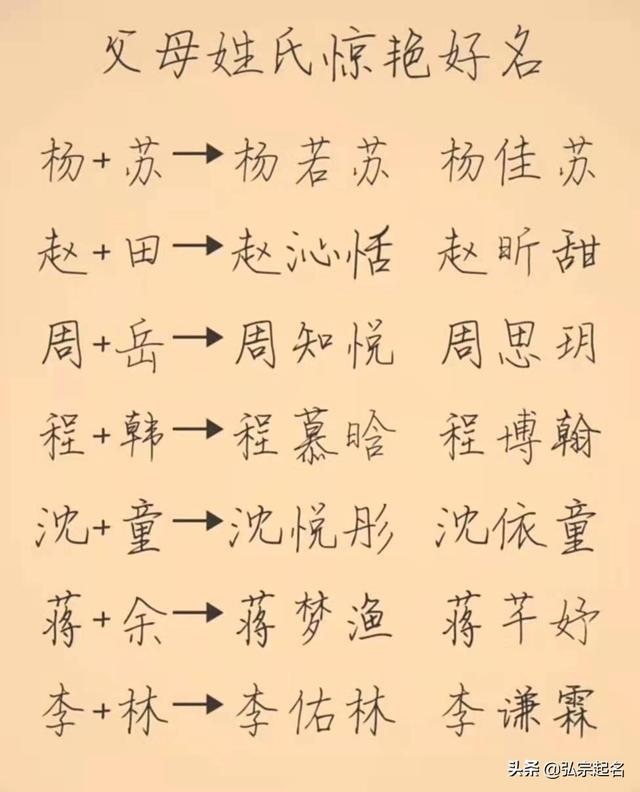 父母姓氏惊艳好名
杨+苏→杨若苏 杨佳苏
赵+田→赵沁恬 赵昕甜
周+岳→周知悦 周思玥
程+韩→程慕晗 程博翰
沈+童→沈悦彤 沈依童
蒋+余→蒋梦渔 蒋芊妤
李+林→李佑林 李谦霖
头条 @弘宗起名